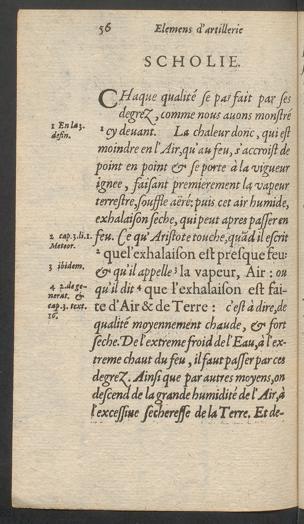 56 Elemens d'artillerie
SCHOLIE.
CHaque qualité se parfait par ses
degrez, comme nous auons monstré
1 En la 3. defin.
¹ cy deuant. La chaleur donc, qui est
moindre en l'Air, qu'au feu, s'accroist de
point en point & se porte à la vigueur
ignee, faisant premierement la vapeur
terrestre, souffle aëré; puis cet air humide,
exhalaison seche, qui peut apres passer en
2 cap. 3. li. 1. Meteor.
feu. Ce qu'Aristote touche, quãd il escrit
² quel'exhalaison est presque feu:
3 ibidem.
& qu'il appelle ³ la vapeur, Air: ou
4 2. de ge-
nerat. &
cap. 3. text.
16.
qu'il dit ⁴ que l'exhalaison est fai-
te d'Air & de Terre: c'est à dire, de
qualité moyennement chaude, & fort
seche. De l'extreme froid de l'Eau, à l'ex-
treme chaut du feu, il faut passer par ces
degrez. Ainsi que par autres moyens, on
descend de la grande humidité de l'Air, à
l'excessiue secheresse de la Terre. Et de-